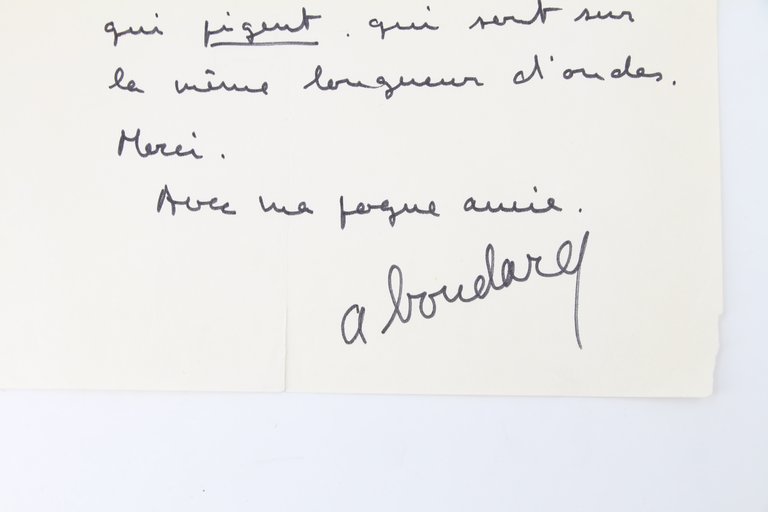 qui pigent. qui sont sur
la même longueur d'ondes.
Merci.
Avec ma pogne amie.
a boudard